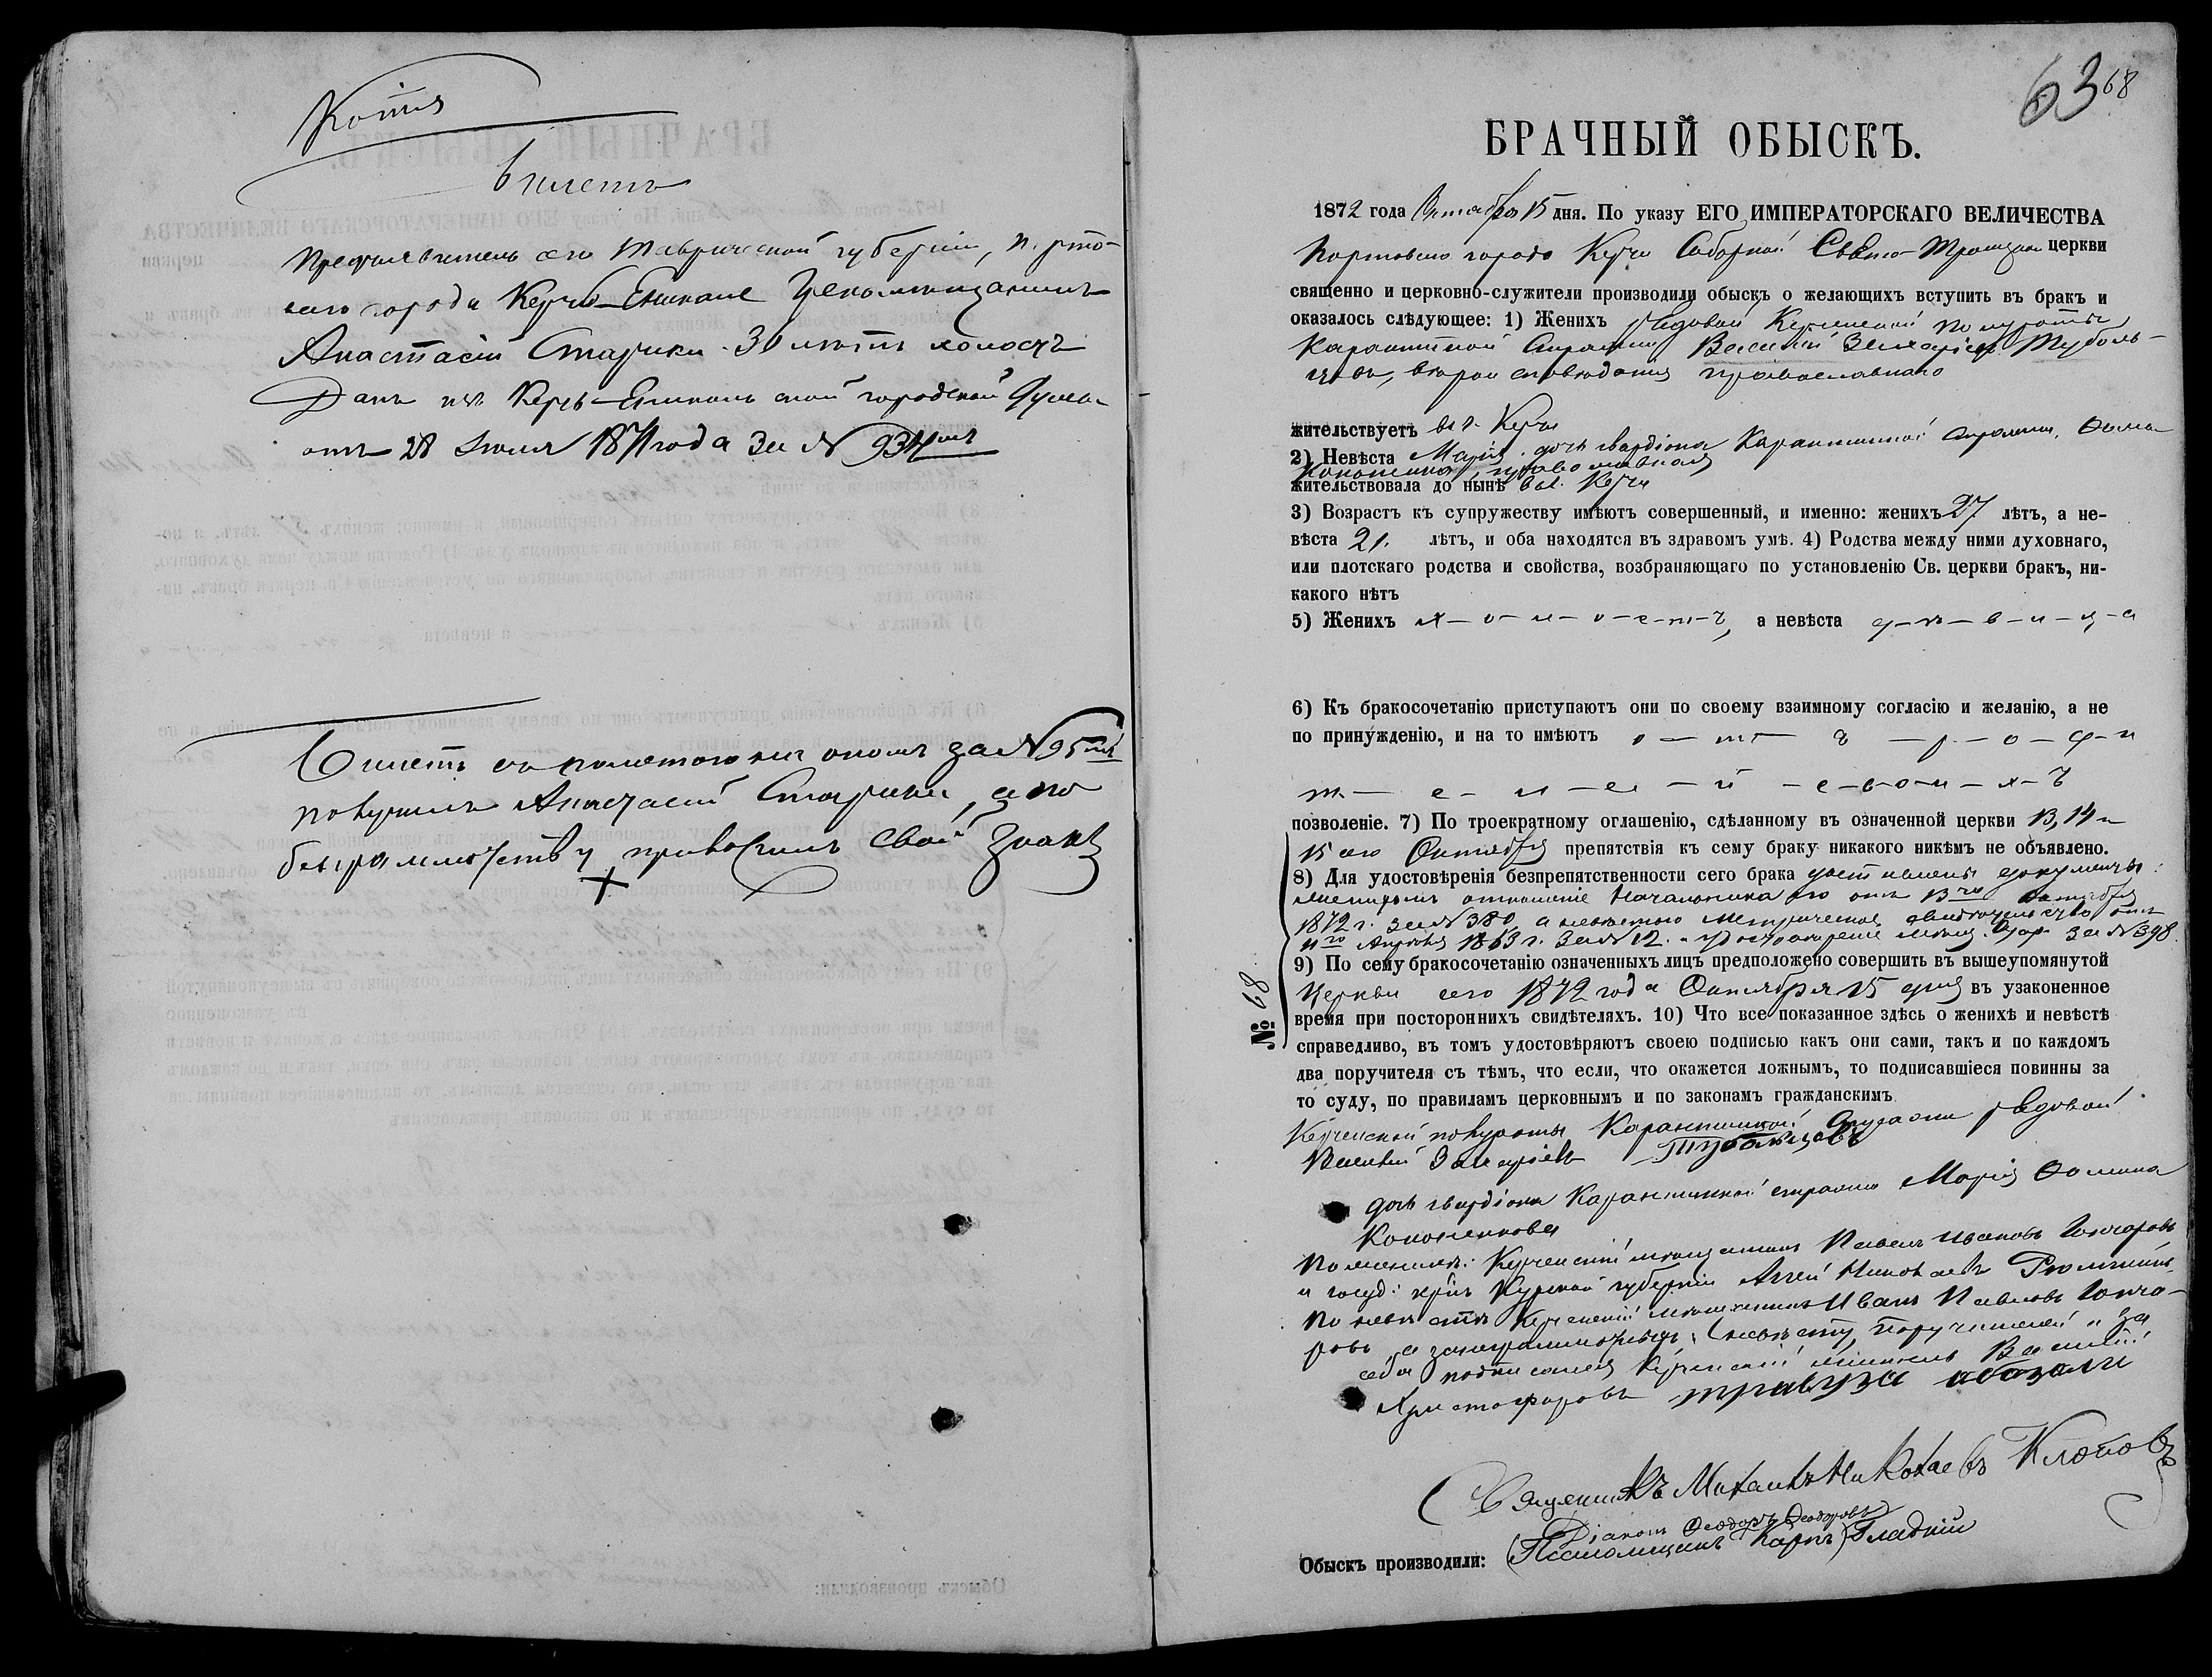 Копія
Билетъ
Предъявитель сего Таврической губерніи, порто-
ваго города Керчь-Еникале Цеховый мѣщанинъ
Анастасій Старики 30 лѣтъ холостъ
Данъ изъ Керчь-Еникольской городской Думы
отъ 28 Іюля 1871 года за № 934мъ
Билетъ съ пометкою на ономъ за № 95мъ
получилъ Анастасій Старики, а по
безграмотству приложилъ свой знакъ
+
63 68
БРАЧНЫЙ ОБЫСКЪ.
1872 года Октября 15 дня. По указу ЕГО ИМПЕРАТОРСКАГО ВЕЛИЧЕСТВА
Портоваго города Керчи Соборной Свято-Троицкой церкви
священно и церковно-служители производили обыскъ о желающихъ вступить въ бракъ и
оказалось слѣдующее: 1) Женихъ рядовой Керченской полуроты
Карантинной Стражи Василій Захаріевъ Туболь-
цевъ, вѣроисповѣданія православнаго
жительствуетъ въ г. Керчи
2) Невѣста Марія дочь гвардіона Карантинной стражи, Фома
Кононенкова, православная
жительствовала до нынѣ въ г. Керчи
3) Возрастъ къ супружеству имѣютъ совершенный, и именно: женихъ 27 лѣтъ, а не-
вѣста 21. лѣтъ, и оба находятся въ здравомъ умѣ. 4) Родства между ними духовнаго,
или плотскаго родства и свойства, возбраняющаго по установленію Св. церкви бракъ, ни-
какого нѣтъ
5) Женихъ х-о-л-о-с-т-ъ, а невѣста д-ѣ-в-и-ц-а
6) Къ бракосочетанію приступаютъ они по своему взаимному согласію и желанію, а не
по принужденію, и на то имѣютъ о-т-ъ-р-о-д-и
т-е-л-е-й-с-в-о-и-х-ъ
позволеніе. 7) По троекратному оглашенію, сдѣланному въ означенной церкви 13, 14 и
15 сего Октября препятствія къ сему браку никакого никѣмъ не объявлено.
8) Для удостовѣренія безпрепятственности сего брака доставлены документы:
женихомъ отношеніе Начальника его отъ 13го Октября
1872 г. за № 380, а невѣстою метрическое свидѣтельство отъ
11го Апрѣля 1863 г. за № 12. и удостовѣреніе за № 398.
9) По сему бракосочетанію означенныхъ лицъ предположено совершить въ вышеупомянутой
Церкви сего 1872 года Октября 15 дня въ узаконенное
время при постороннихъ свидѣтеляхъ. 10) Что все показанное здѣсь о женихѣ и невѣстѣ
справедливо, въ томъ удостовѣряютъ своею подписью какъ они сами, такъ и по каждомъ
два поручителя съ тѣмъ, что если, что окажется ложнымъ, то подписавшіеся повинны за
то суду, по правиламъ церковнымъ и по законамъ гражданскимъ
№ 68
Керченской полуроты Карантинной Стражи рядовой
Василій Захаріевъ Тубольцевъ
дочь гвардіона Карантинной стражи Марія Фомина
Кононенкова
По женихѣ: Керченскій мѣщанинъ Павелъ Ивановъ Гончаровъ
и госуд: крѣс Курской губерніи Аггей Николаевъ Рюмшинъ
По невѣстѣ Керченскій мѣщанинъ Иванъ Павловъ Гонча-
ровъ, а за неграмотныхъ: невѣсту, поручителей и за
себя подписался Керченскій мѣщанинъ Василій
Христофоровъ
Священникъ Михаилъ Николаевъ Клоповъ
Діаконъ Феодоръ Феодоровъ
Обыскъ производили: Псаломщикъ Карпъ Гладкій